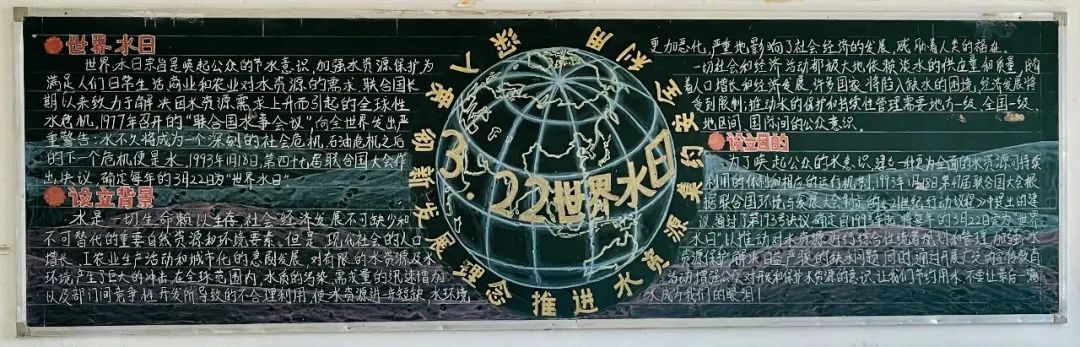 世界水日
世界水日宗旨是唤起公众的节水意识,加强水资源保护为
满足人们日常生活、商业和农业对水资源的需求,联合国长
期以来致力于解决因水资源需求上升而引起的全球性
水危机,1977年召开的“联合国水事会议”,向全世界发出严
重警告:水不久将成为一个深刻的社会危机,石油危机之后
的下一个危机便是水,1993年1月18日,第四十七届联合国大会作
出决议,确定每年的3月22日为“世界水日”。
设立背景
水是一切生命赖以生存,社会经济发展不可缺少和
不可替代的重要自然资源和环境要素,但是,现代社会的人口
增长、工农业生产活动和城市化的急剧发展,对有限的水资源及水
环境产生了巨大的冲击,在全球范围内,水质的污染、需求量的迅速增加
以及部门间竞争性开发所导致的不合理利用,使水资源进一步短缺,水环境
深入贯彻新发展理念 推进水资源集约安全利用
3.22世界水日
更加恶化,严重地影响了社会经济的发展,威胁着人类的福祉。
一切社会和经济活动都极大地依赖淡水的供应量和质量,随
着人口增长和经济发展,许多国家将陷入缺水的困境,经济发展将
受到限制,推动水的保护和持续性管理需要地方一级、全国一级、
地区间、国际间的公众意识。
设立目的
为了唤起公众的水意识,建立一种更为全面的水资源可持续
利用的体制和相应的运行机制,1993年1月18日第47届联合国大会根
据联合国环境与发展大会制定的《21世纪行动议程》中提出的建
议,通过了第193号决议,确定自1993年起,将每年的3月22日定为“世界
水日”以推动对水资源进行综合性统筹规划和管理,加强水
资源保护,解决日益严峻的缺水问题,同时,通过开展广泛的宣传教育
活动,增强公众对开发和保护水资源的意识,让我们节约用水,不要让最后一滴
水成为我们的眼泪!